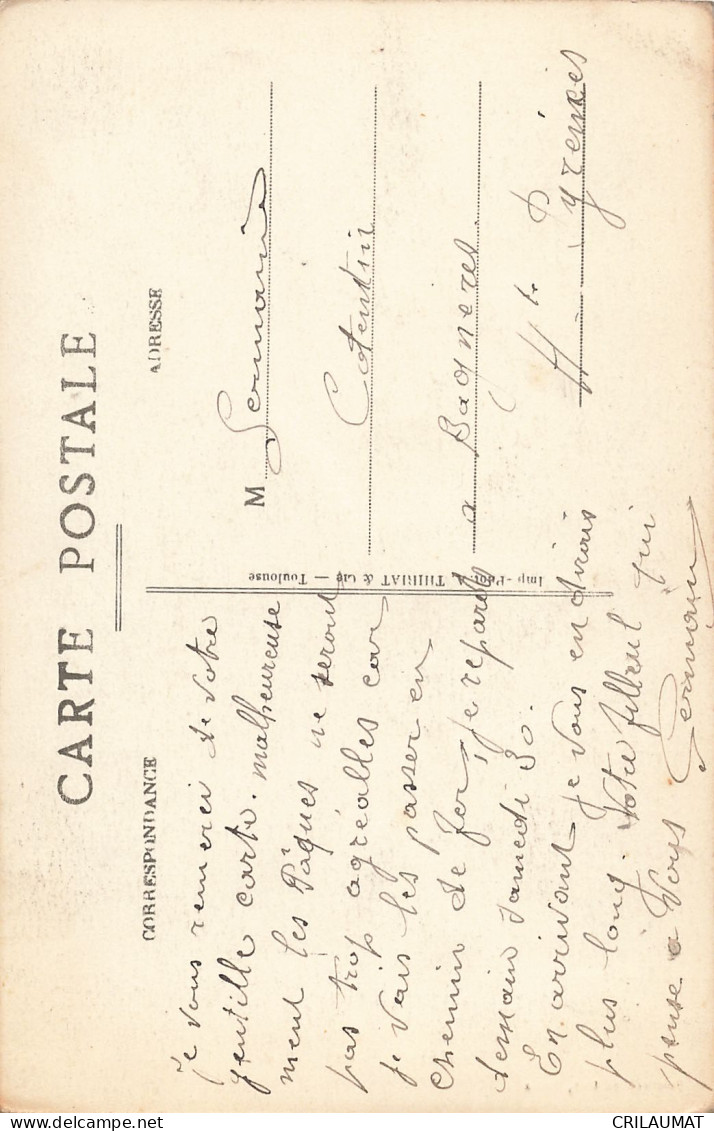 CARTE POSTALE
CORRESPONDANCE
Je vous remerci de votre
gentille carte. malheureuse
ment les Pâques ne seront
pas trop agréables car
je vais les passer en
chemin de fer, je repards
demain samedi 30.
En arrivant je vous en dirais
plus long Votre filleul qui
pense a Vous Germain
Imp-Phot. A. THIRIAT & Cie — Toulouse
ADRESSE
M Germaine
Cotentin
a Bagneres.
Htes Pyrénées
CRILAUMAT